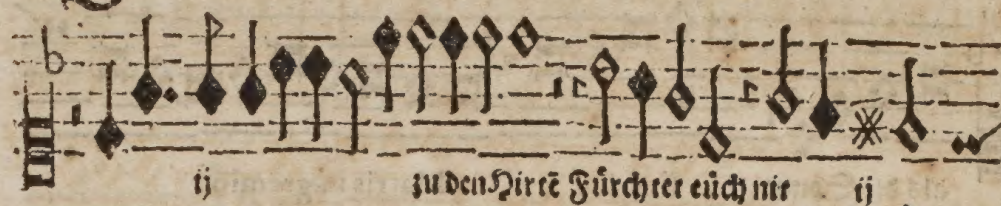 ij zu den Hirtē Fürchtet eüch nit ij